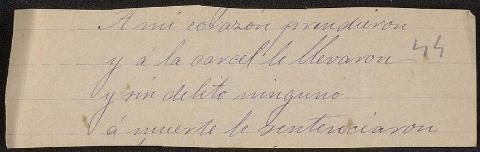 A mi corazón prendieron
y á la carcel le llevaron
44
y sin delito ninguno
á muerte le sentenciaron